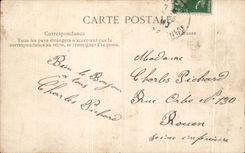 CARTE POSTALE
Correspondance
Tous les pays étrangers n'acceptent pas la correspondance
au verso, se renseigner à la poste.
Bien le Bonjour
à tous
Charles Pichard
Madame
Charles Pichard
Rue Orbe N° 130
Rouen
Seine inférieure